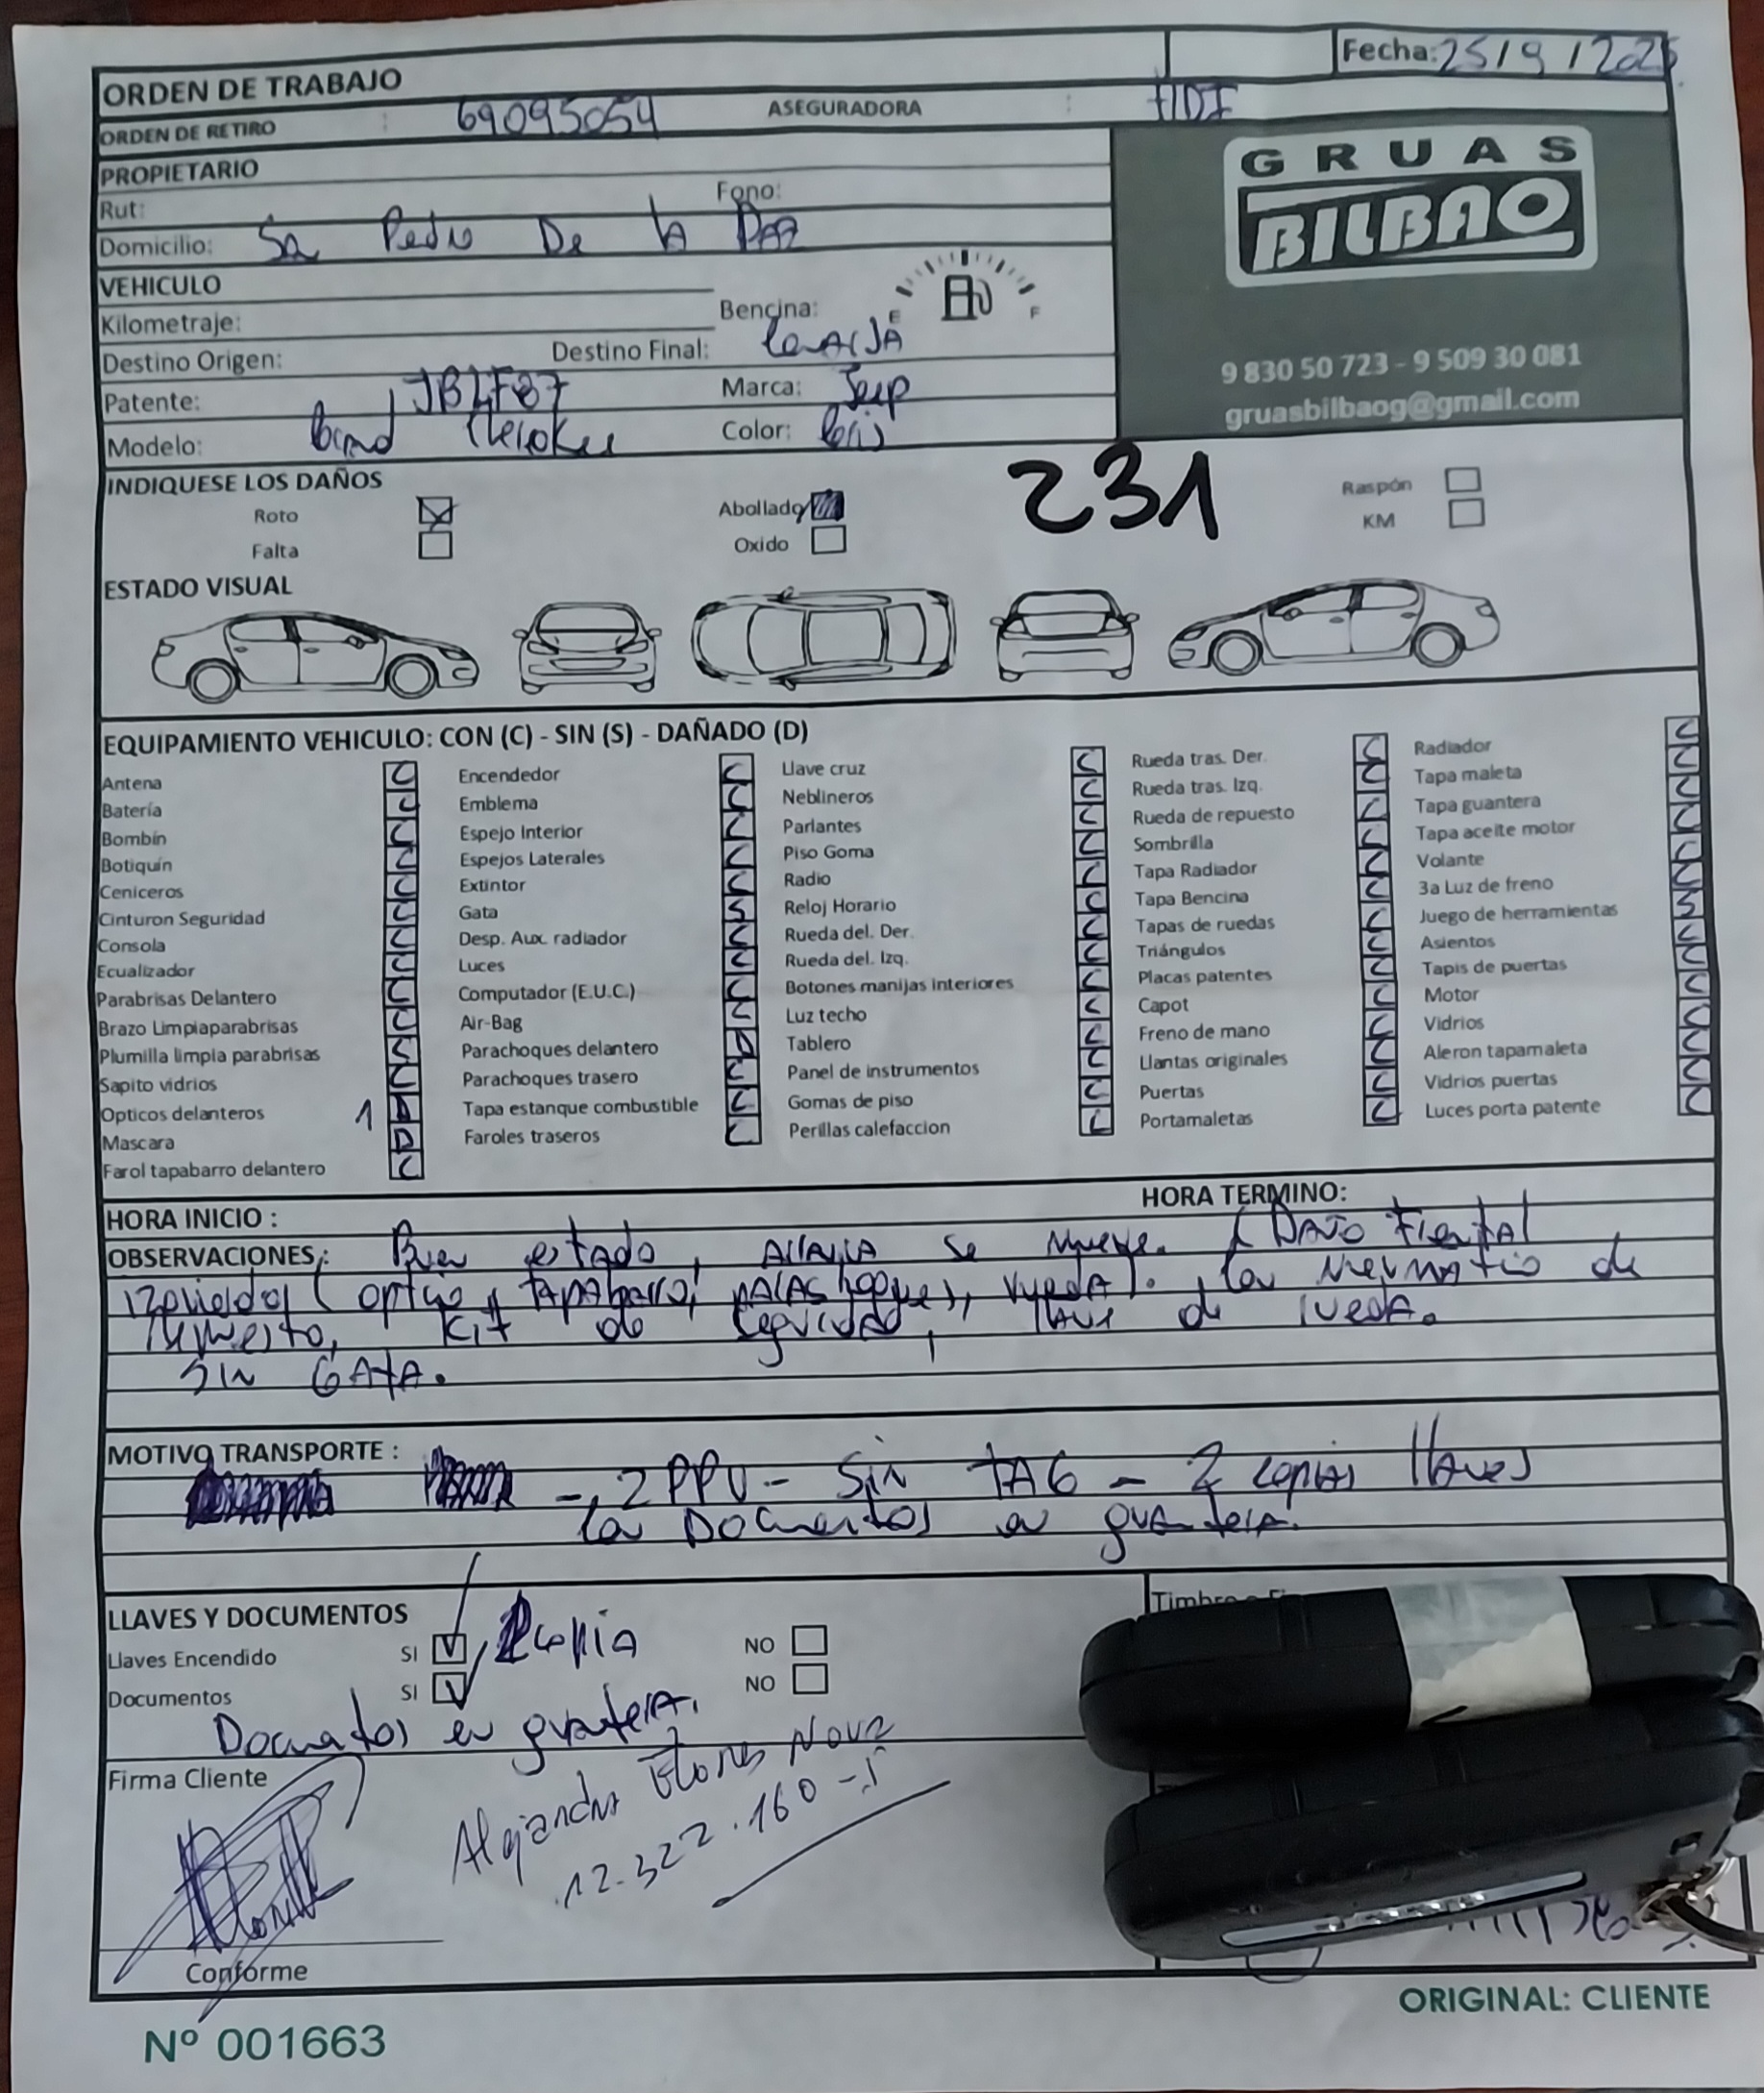 ORDEN DE TRABAJO
Fecha: 25/9/2025
ORDEN DE RETIRO : 69095054 ASEGURADORA : HDI
PROPIETARIO
Rut: Fono:
Domicilio: Sn Pedro De la Paz
VEHICULO
Kilometraje: Bencina: E F
Destino Origen: Destino Final:
Patente: JBLF87 Marca: Jeep
Modelo: Grand Cherokee Color: Gris
GRUAS
BILBAO
9 830 50 723 - 9 509 30 081
gruasbilbaog@gmail.com
INDIQUESE LOS DAÑOS
231
Roto Abollado Raspón
Falta Oxido KM
ESTADO VISUAL
EQUIPAMIENTO VEHICULO: CON (C) - SIN (S) - DAÑADO (D)
Antena C
Batería C
Bombín C
Botiquín C
Ceniceros C
Cinturon Seguridad C
Consola C
Ecualizador C
Parabrisas Delantero C
Brazo Limpiaparabrisas C
Plumilla limpia parabrisas C
Sapito vidrios C
Opticos delanteros 1 D
Mascara D
Farol tapabarro delantero C
Encendedor C
Emblema C
Espejo Interior C
Espejos Laterales C
Extintor C
Gata S
Desp. Aux. radiador C
Luces C
Computador (E.U.C.) C
Air-Bag C
Parachoques delantero D
Parachoques trasero C
Tapa estanque combustible C
Faroles traseros C
Llave cruz C
Neblineros C
Parlantes C
Piso Goma C
Radio C
Reloj Horario C
Rueda del. Der. C
Rueda del. Izq. C
Botones manijas interiores C
Luz techo C
Tablero C
Panel de instrumentos C
Gomas de piso C
Perillas calefaccion C
Rueda tras. Der. C
Rueda tras. Izq. C
Rueda de repuesto C
Sombrilla C
Tapa Radiador C
Tapa Bencina C
Tapas de ruedas C
Triángulos C
Placas patentes C
Capot C
Freno de mano C
Llantas originales C
Puertas C
Portamaletas C
Radiador C
Tapa maleta C
Tapa guantera C
Tapa aceite motor C
Volante C
3a Luz de freno C
Juego de herramientas S
Asientos C
Tapis de puertas C
Motor C
Vidrios C
Aleron tapamaleta C
Vidrios puertas C
Luces porta patente C
HORA INICIO : HORA TERMINO:
OBSERVACIONES : Buen estado, Arranca se mueve. (Daño Frental
izquierdo (optico, tapabarro, parachoques, rueda). Con Neumatico de
repuesto, Kit de seguridad, llave de rueda.
Sin GATA.
MOTIVO TRANSPORTE :
- 2 PPU - Sin TAG - 2 copias llaves
Con Documentos en guantera.
LLAVES Y DOCUMENTOS
Llaves Encendido SI copia NO
Documentos SI NO
Documentos en guantera.
Firma Cliente
Alejandra Flores Nova
12.322.160-
Conforme
ORIGINAL: CLIENTE
Nº 001663